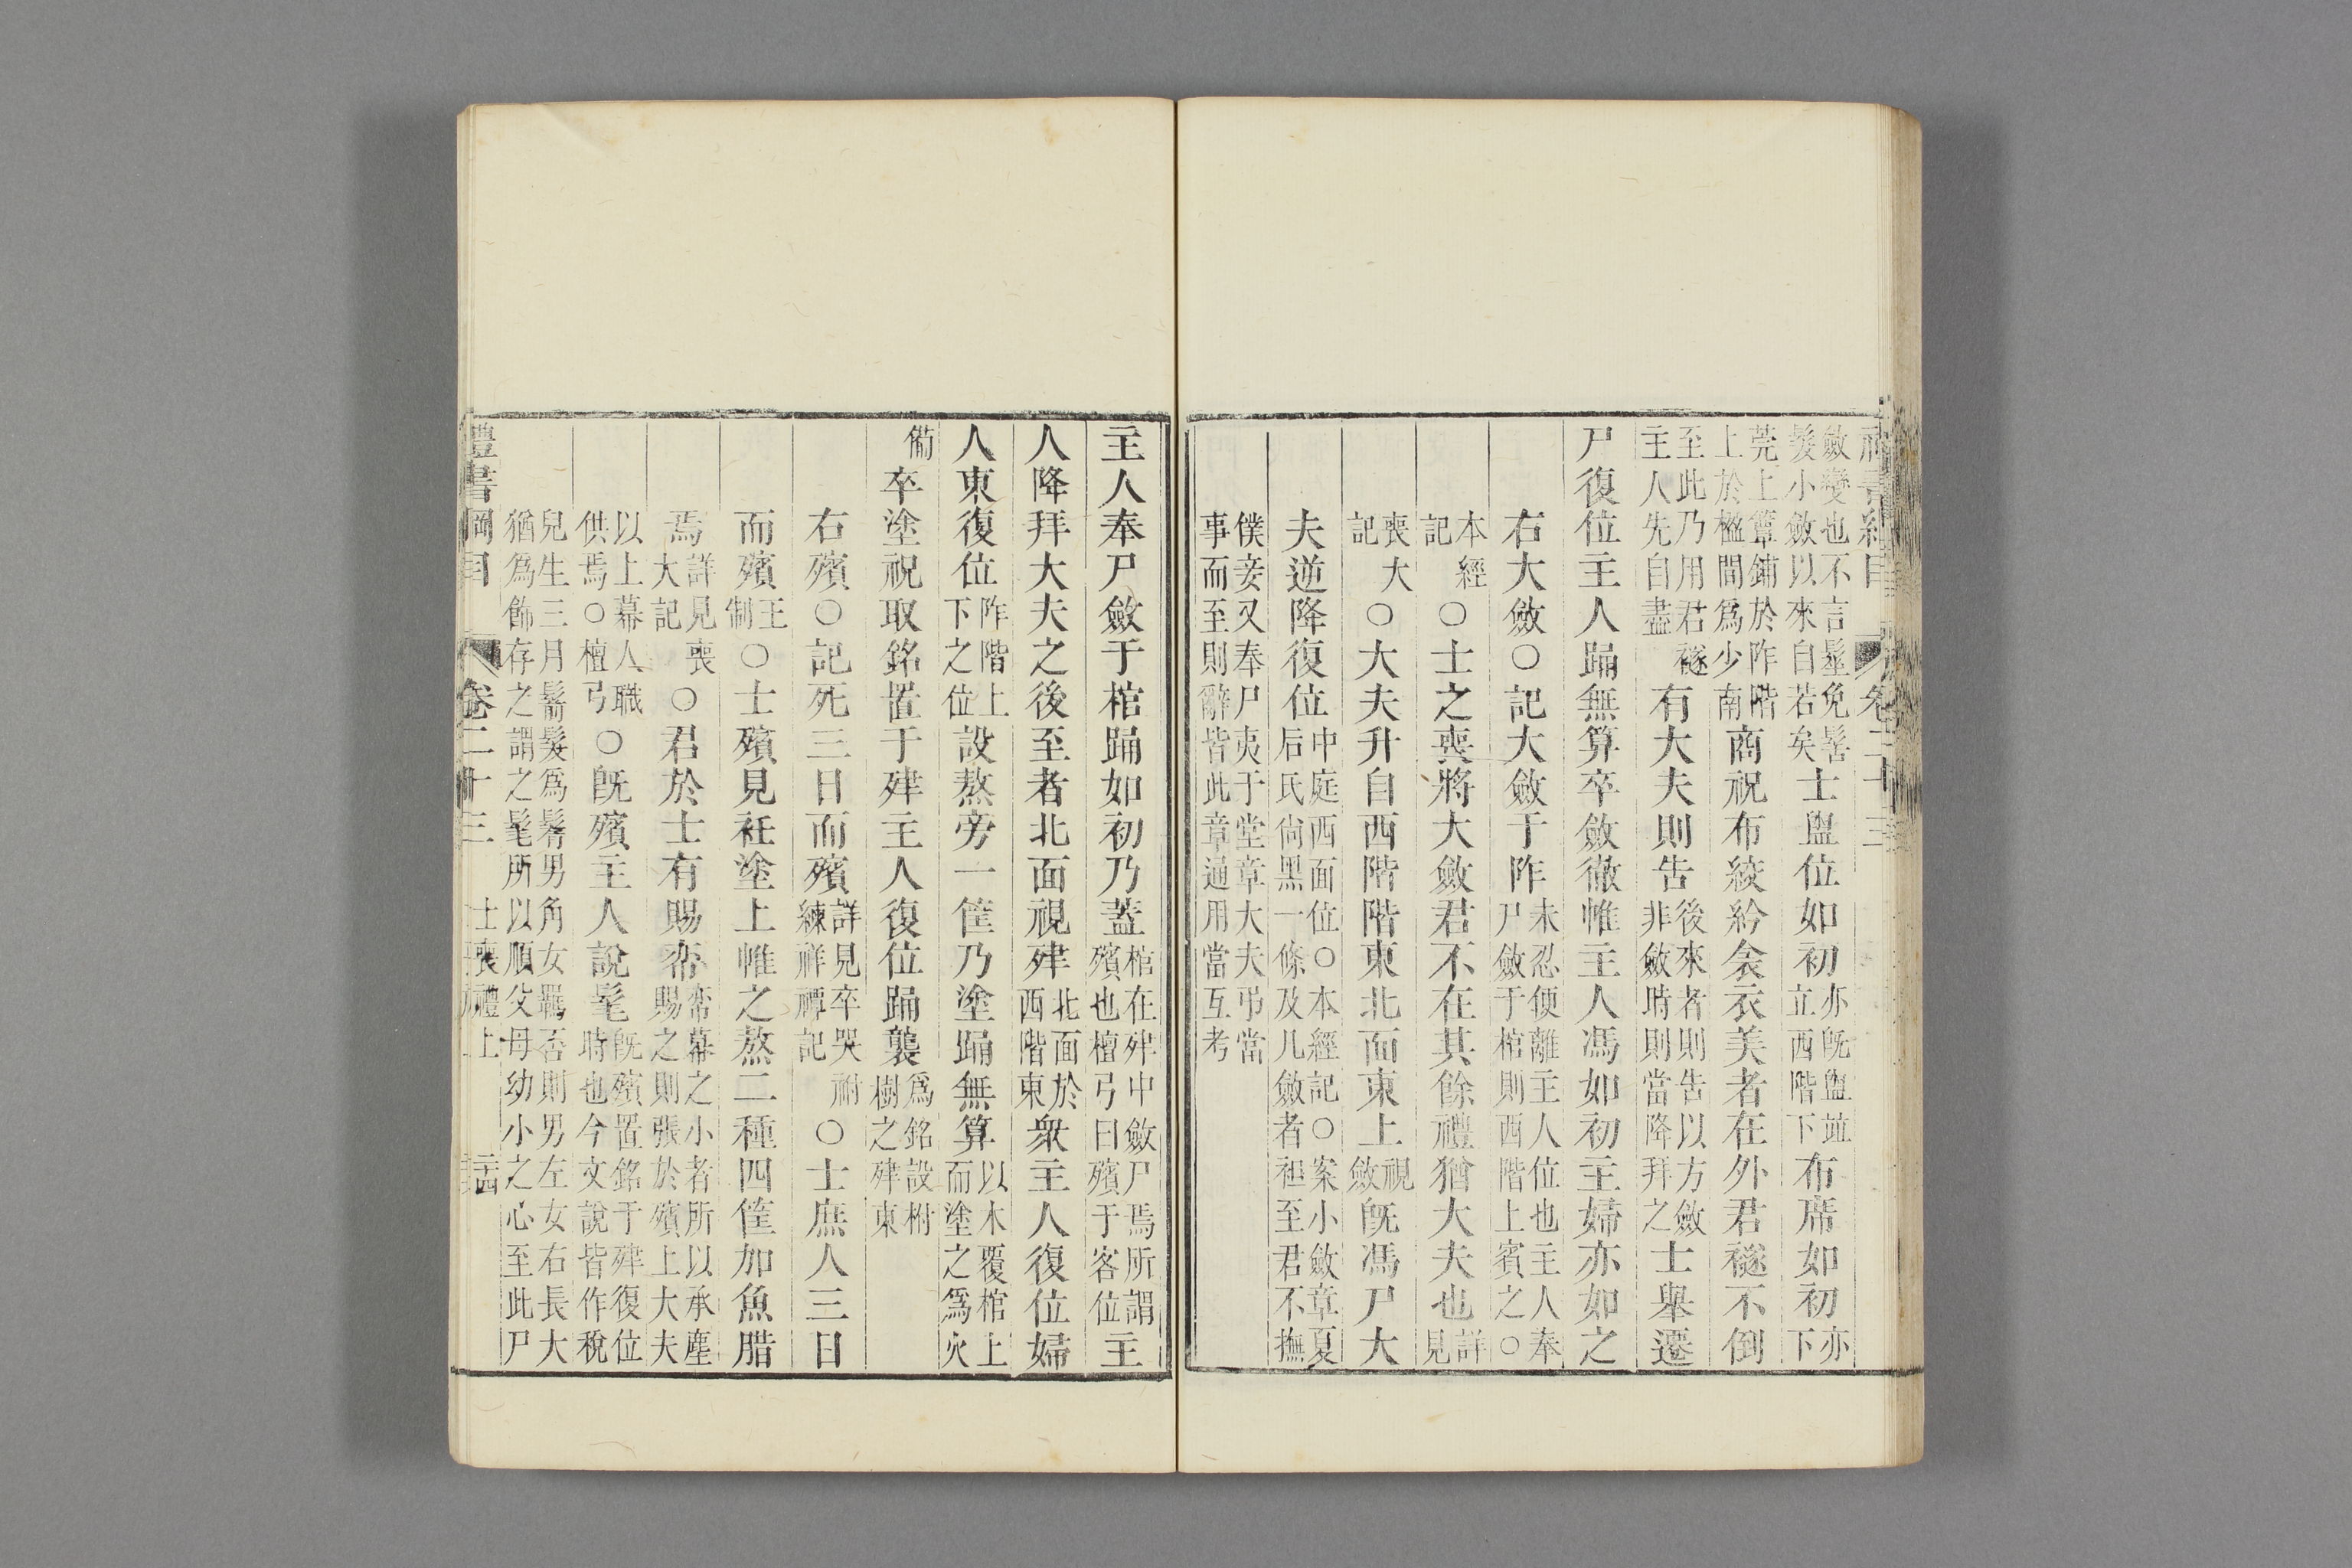 禮書綱目　卷二十三
斂變也不言髽免髺髮小斂以來自若矣士盥位如初亦既盥並立西階下布席如初亦下
莞上簟鋪於阼階上於楹間爲少南商祝布絞紟衾衣美者在外君襚不倒
至此乃用君襚主人先自盡有大夫則告後來者則告以方斂非斂時則當降拜之士舉遷
尸復位主人踊無算卒斂徹帷主人馮如初主婦亦如之
右大斂○記大斂于阼未忍便離主人位也主人奉尸斂于棺則西階上賓之○
本經記○士之喪將大斂君不在其餘禮猶大夫也詳見
喪大記○大夫升自西階階東北面東上視斂既馮尸大
夫逆降復位中庭西面位○本經記○案小斂章夏后氏尚黑一條及凡斂者袒至君不撫
僕妾又奉尸夷于堂章大夫弔當事而至則辭皆此章通用當互考
主人奉尸斂于棺踊如初乃蓋棺在肂中斂尸焉所謂殯也檀弓曰殯于客位主
人降拜大夫之後至者北面視肂北面於西階東衆主人復位婦
人東復位阼階上下之位設熬旁一筐乃塗踊無算以木覆棺上而塗之爲火
備卒塗祝取銘置于肂主人復位踊襲爲銘設柎樹之肂東
右殯○記死三日而殯詳見卒哭祔練祥禫記○士庶人三日
而殯王制○士殯見衽塗上帷之熬二種四筐加魚腊
焉詳見喪大記○君於士有賜帟帟幕之小者所以承塵賜之則張於殯上大夫
以上幕人職供焉○檀弓○既殯主人說髦既殯置銘于肂復位時也今文說皆作稅
兒生三月鬋髮爲鬌男角女羈否則男左女右長大猶爲飾存之謂之髦所以順父母幼小之心至此尸
禮書綱目　卷二十三　士喪禮上